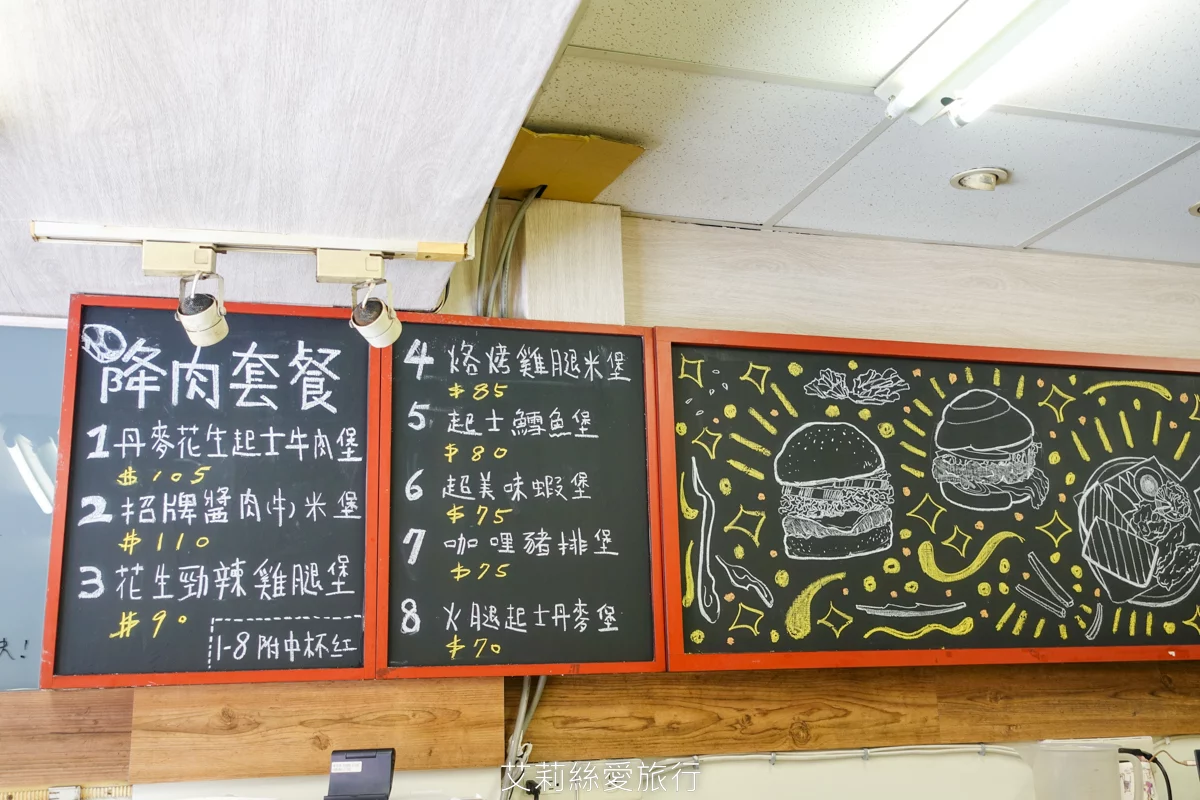 降肉套餐
1 丹麥花生起士牛肉堡
$105
2 招牌醬肉(牛)米堡
$110
3 花生勁辣雞腿堡
$90
1-8 附中杯紅
4 烙烤雞腿米堡
$85
5 起士鱈魚堡
$80
6 超美味蝦堡
$75
7 咖哩豬排堡
$75
8 火腿起士丹麥堡
$70
艾莉絲愛旅行